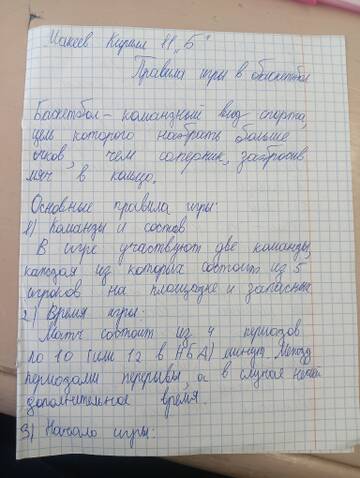 Исаев Кирилл 11 "Б"
Правила игры в баскетбол
Баскетбол - командный вид спорта,
цель которого набрать больше
очков, чем соперник, забросив
мяч в кольцо.
Основные правила игры:
1) Команды и состав
В игре участвуют две команды,
каждая из которых состоит из 5
игроков на площадке и запасных
2) Время игры:
Матч состоит из 4 периодов
по 10 (или 12 в НБА) минут. Между
периодами перерывы, а в случае ничьи
дополнительное время.
3) Начало игры: